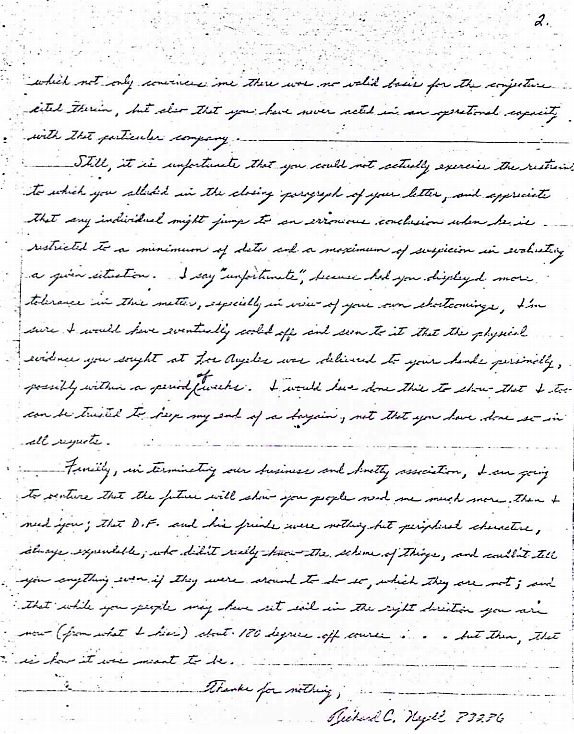 2.
which not only convinces me there was no valid basis for the conjecture
cited therein, but also that you have never acted in an operational capacity
with that particular company.
Still, it is unfortunate that you could not actually exercise the restraint
to which you alluded in the closing paragraph of your letter, and appreciate
that any individual might jump to an erronious conclusion when he is
restricted to a minimum of data and a maximum of suspicion in evaluating
a given situation. I say "unfortunate", because had you displayed more
tolerance in this matter, especially in view of your own shortcomings, I'm
sure I would have eventually cooled off and seen to it that the physical
evidence you sought at Los Angeles was delivered to your hands personally,
possibly within a period of weeks. I would have done this to show that I too
can be trusted to keep my end of a bargain, not that you have done so in
all respects.
Finally, in terminating our business and association, I am going
to venture that the future will show you people need me much more than I
need you; that D.F. and his friends were nothing but peripheral characters,
always expendable, who didn't really know the scheme of things, and couldn't tell
you anything even if they were around to do so, which they are not; and
that while you people may have set sail in the right direction you are
now (from what I hear) about 180 degrees off course . . . but then, that
is how it was meant to be.
Thanks for nothing,
Richard C.